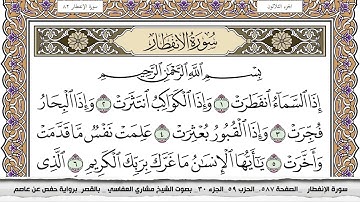 الجزء الثلاثون
سورة الإنفطار ٨٢
سُورَةُ الِانفِطَارِ
بِسْمِ اللَّهِ الرَّحْمَٰنِ الرَّحِيمِ
إِذَا السَّمَاءُ انفَطَرَتْ ١ وَإِذَا الْكَوَاكِبُ انتَثَرَتْ ٢ وَإِذَا الْبِحَارُ
فُجِّرَتْ ٣ وَإِذَا الْقُبُورُ بُعْثِرَتْ ٤ عَلِمَتْ نَفْسٌ مَّا قَدَّمَتْ
وَأَخَّرَتْ ٥ يَا أَيُّهَا الْإِنسَانُ مَا غَرَّكَ بِرَبِّكَ الْكَرِيمِ ٦ الَّذِي
سورة الإنفطار الصفحة ٥٨٧ الحزب ٥٩ الجزء ٣٠ بصوت الشيخ مشاري العفاسي بالقصر برواية حفص عن عاصم